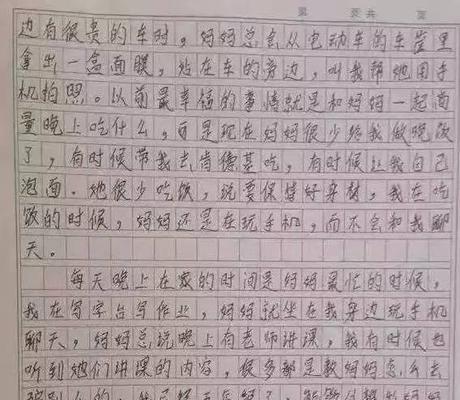 第 页共 页
边有很贵的车时，妈妈总会从电动车的车篮里
拿出一盒面膜，站在车的旁边，叫我帮她用手
机拍照。以前最幸福的事情就是和妈妈一起商
量晚上吃什么，可是现在妈妈很少给我做晚饭
了，有时候带我去肯德基吃，有时候让我自己
泡面。她很少吃饭，说要保持好身材，我在吃
饭的时候，妈妈还是在玩手机，而不会和我聊
天。
每天晚上在家的时间是妈妈最忙的时候，
我在写字台写作业，妈妈就坐在我身边玩手机
聊天，妈妈总说晚上有老师讲课，我有时候也
听到她们讲课的内容，很多都是教妈妈怎么去